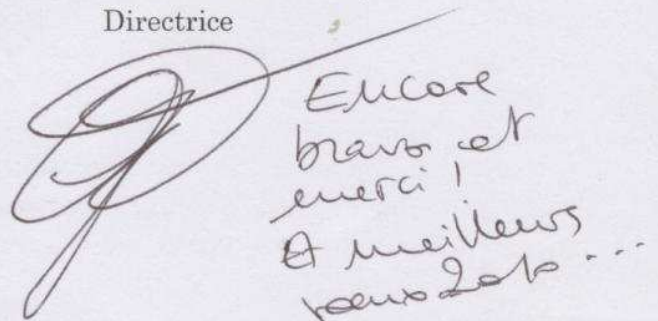 Directrice
Encore
bravo et
merci !
A meilleurs
voeux 2010 ...